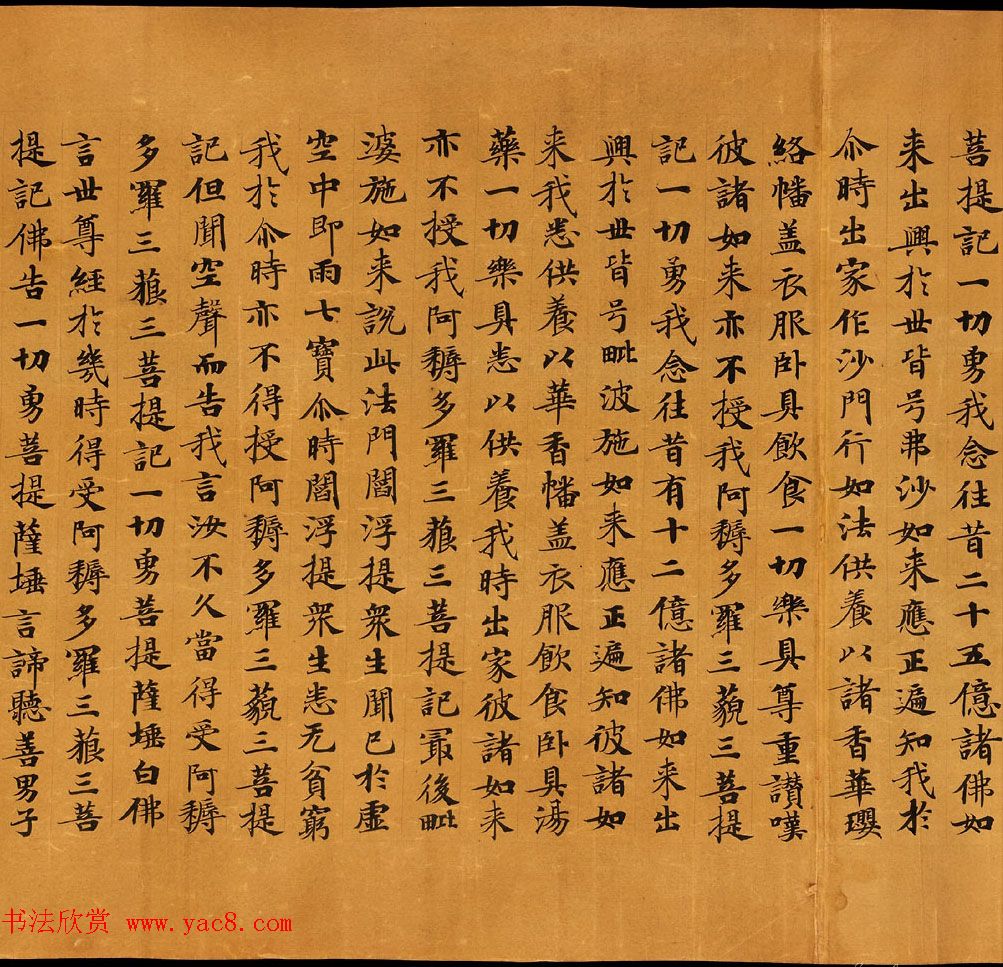 菩提記一切勇我念往昔二十五億諸佛如
来出興於世皆号弗沙如来應正遍知我於
尒時出家作沙門行如法供養以諸香華瓔
絡幡盖衣服卧具飲食一切樂具尊重讃嘆
彼諸如来亦不授我阿耨多羅三藐三菩提
記一切勇我念往昔有十二億諸佛如来出
興於世皆号毗波施如来應正遍知彼諸如
来我悉供養以華香幡盖衣服飲食卧具湯
藥一切樂具悉以供養我時出家彼諸如来
亦不授我阿耨多羅三藐三菩提記冣後毗
婆施如来說此法門閻浮提衆生聞已於虚
空中即雨七寶尒時閻浮提衆生悉无貧窮
我於尒時亦不得授阿耨多羅三藐三菩提
記但聞空聲而告我言汝不久當得受阿耨
多羅三藐三菩提記一切勇菩提薩埵白佛
言世尊經於幾時得受阿耨多羅三藐三菩
提記佛告一切勇菩提薩埵言諦聽善男子
书法欣赏 www.yac8.com